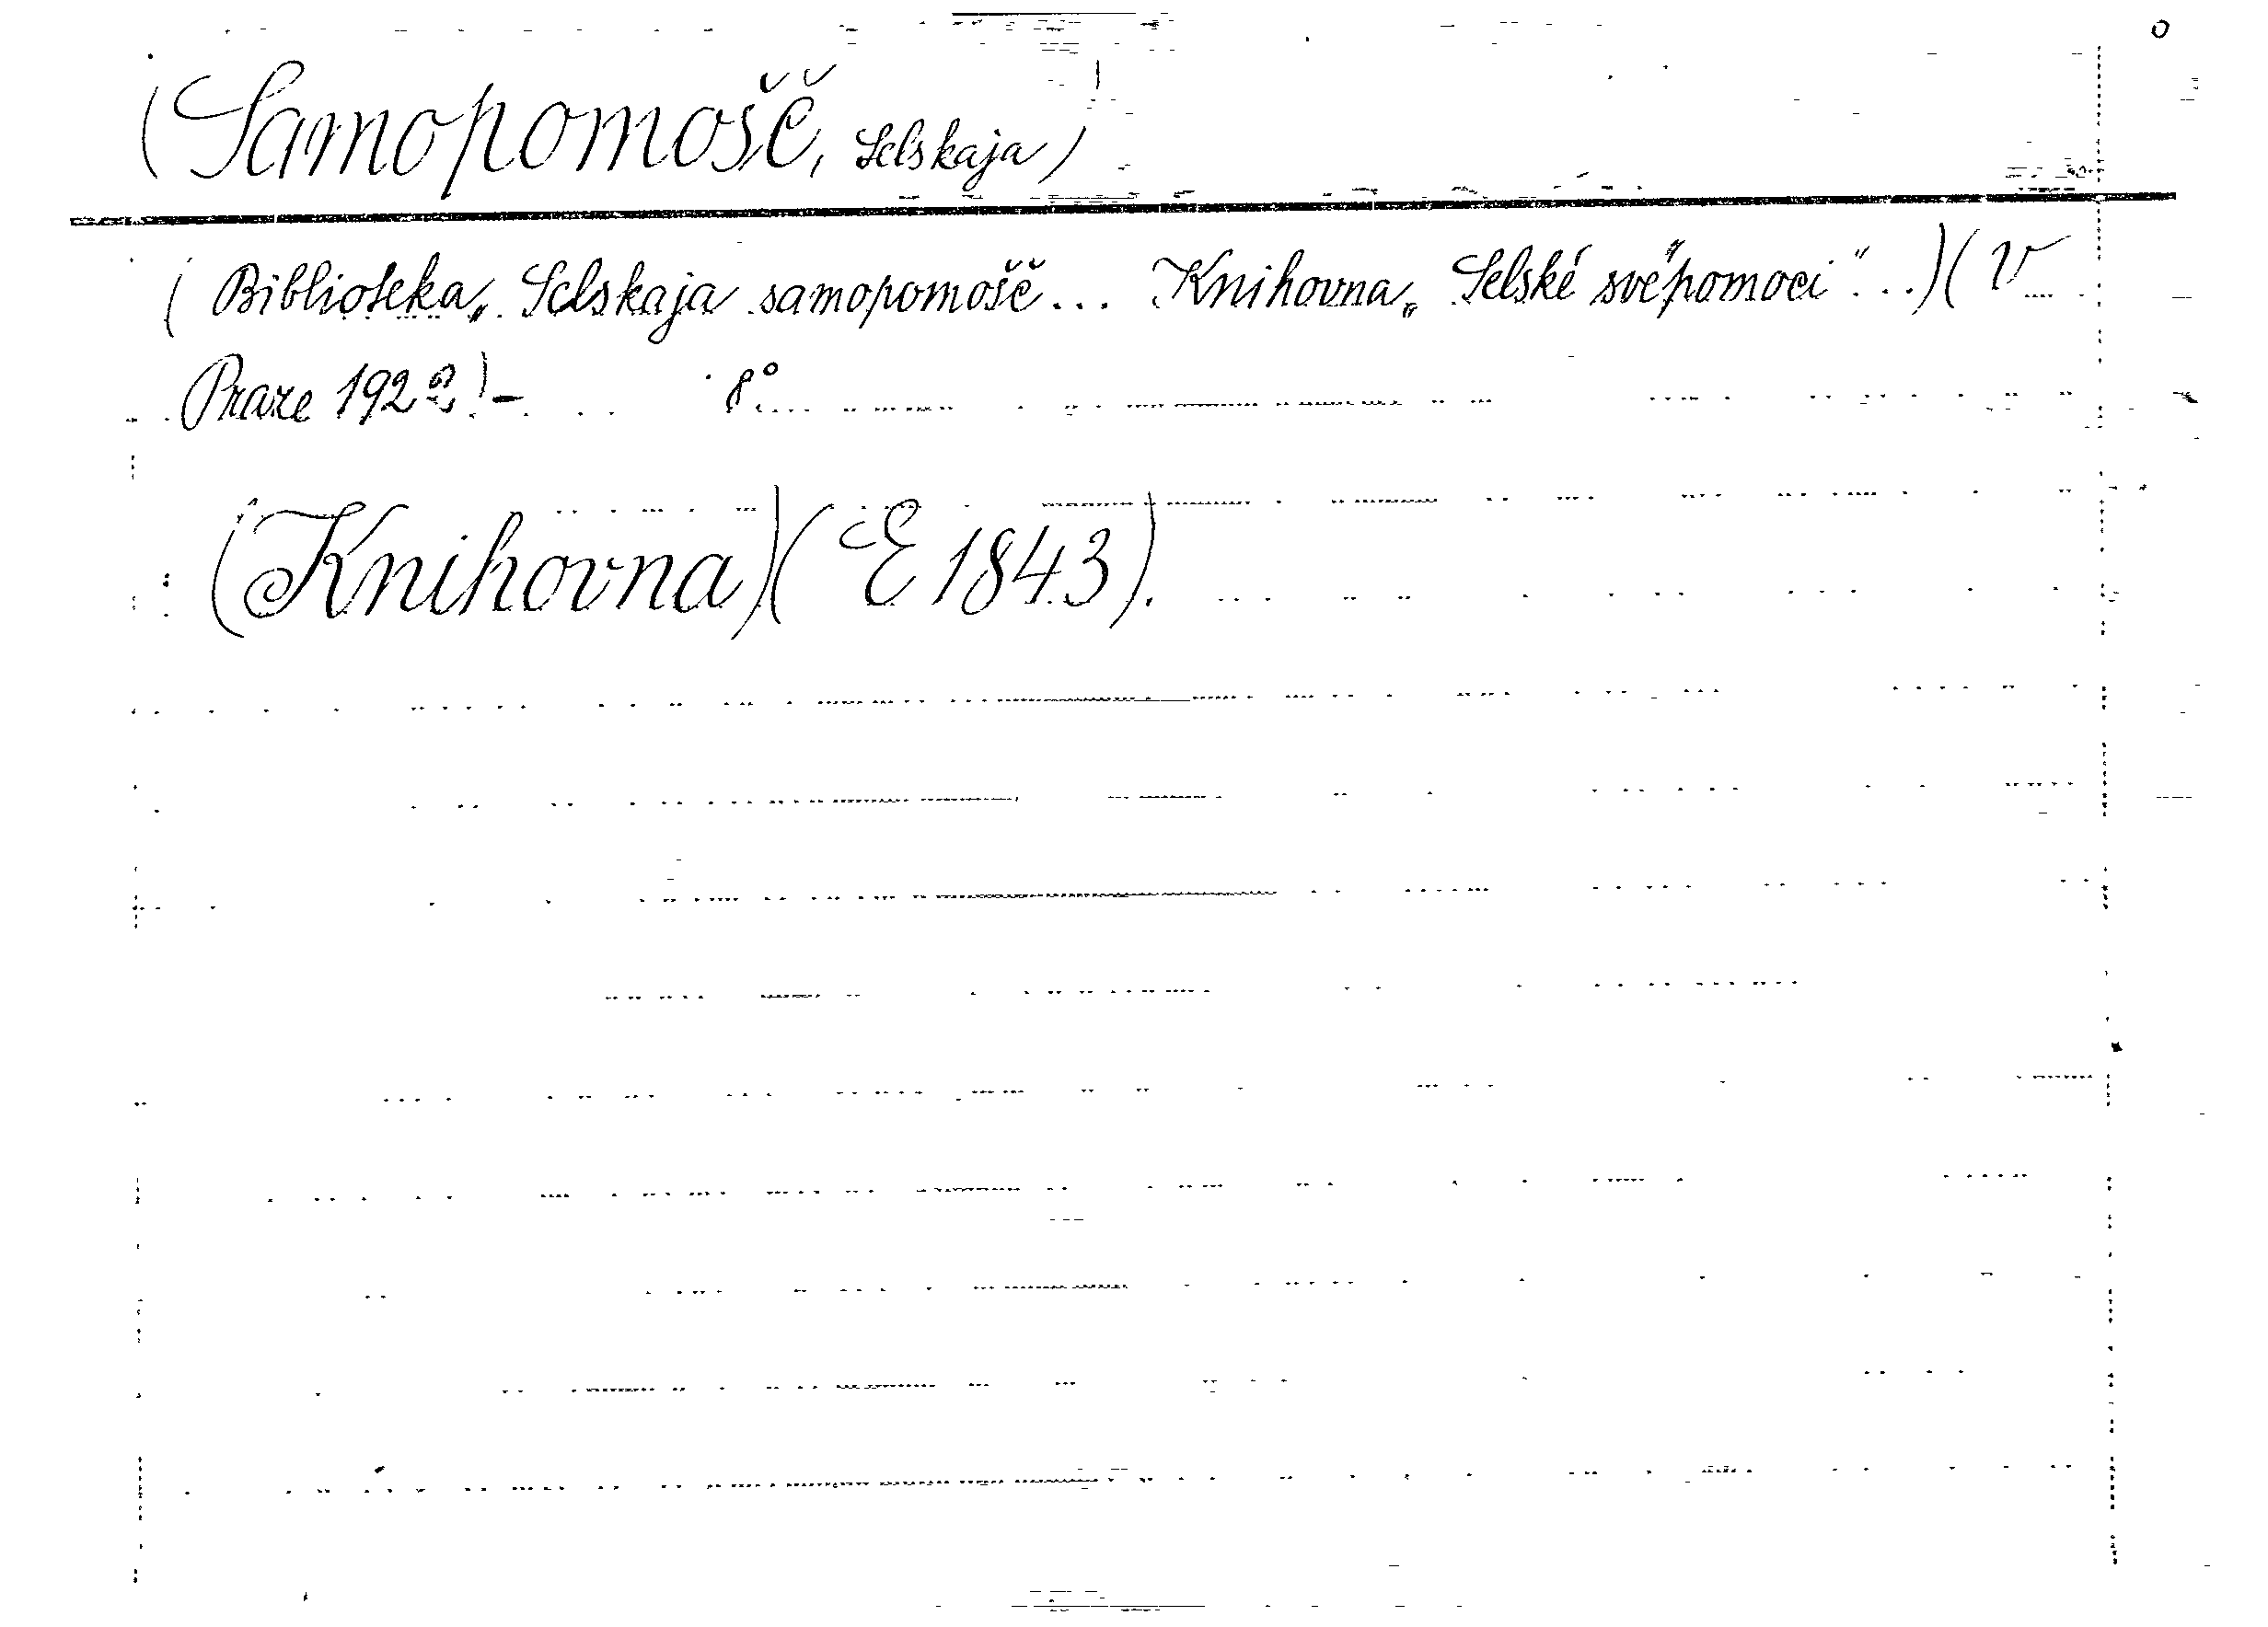 (Samopomošč, Selskaja)
(Biblioteka „Selskaja samopomošč... Knihovna „Selské svépomoci"...) (V
Praze 1922)- 8°
(Knihovna) (E 1843).